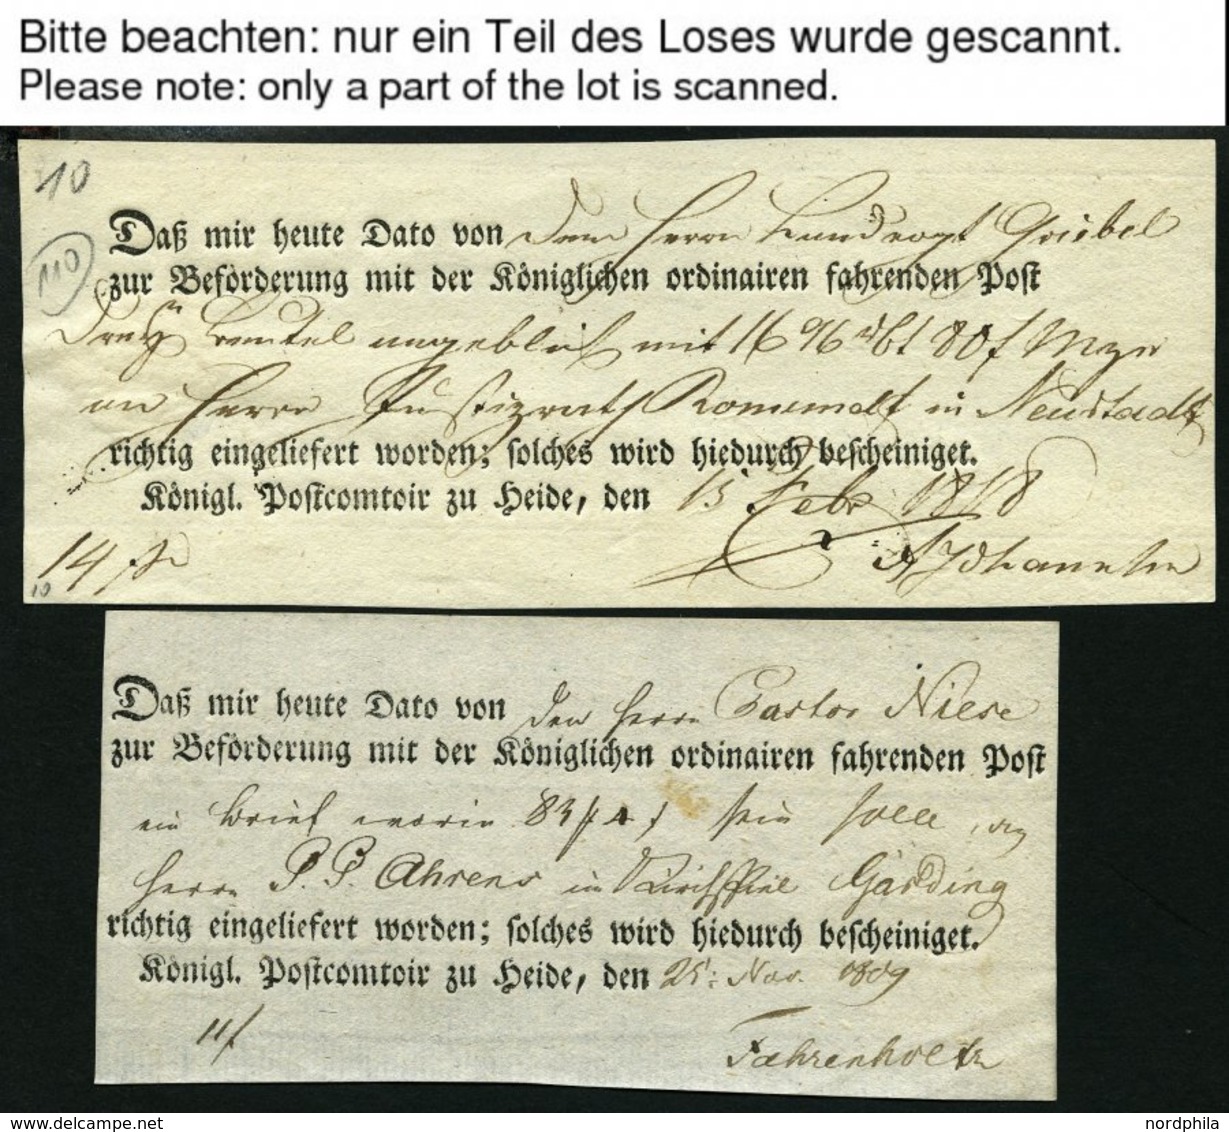 Bitte beachten: nur ein Teil des Loses wurde gescannt.
Please note: only a part of the lot is scanned.
10
110
Daß mir heute Dato von dem Herrn Landvogt Griebel
zur Beförderung mit der Königlichen ordinairen fahrenden Post
Beutel angeblich mit 1696 rbt 80 f
an Herrn Justizrath in Neustadt
richtig eingeliefert worden; solches wird hiedurch bescheiniget.
Königl. Postcomtoir zu Heide, den 15 Febr 1818
14
10
Daß mir heute Dato von den Herrn Pastor Niese
zur Beförderung mit der Königlichen ordinairen fahrenden Post
ein Brief worin 83 sein solle, an
Herrn P. P. Ahrens in Kirchspiel Garding
richtig eingeliefert worden; solches wird hiedurch bescheiniget.
Königl. Postcomtoir zu Heide, den 25: Nov. 1809
11
Fahrenholtz
www.delcampe.net
nordphila